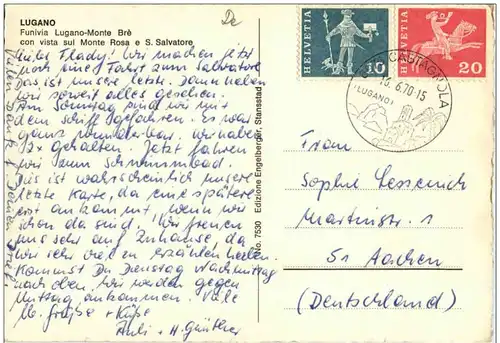 LUGANO
Funivia Lugano-Monte Brè
con vista sul Monte Rosa e S. Salvatore
De
HELVETIA
10
HELVETIA
20
CASTAGNOLA
6.70-15
(LUGANO)
No. 7530 Edizione Engelberger, Stansstad
Wir machen jetzt
noch eine Fahrt zum Salvatore
Das ist unsere letzte. Dann haben
wir soweit alles gesehen.
Am Sonntag sind wir mit
dem Schiff gefahren. Es war
ganz wunderbar. Wir haben
12x gehalten. Jetzt fahren
wir zum Schwimmbad.
Dies ist wahrscheinlich unsere
letzte Karte, da eine spätere
erst ankommt, wenn wir
schon da sind. Wir freuen
uns sehr auf Zuhause, da
wir sehr viel zu erzählen haben.
Kommst Du Dienstag Nachmittag
nach oben. Wir werden gegen
Mittag ankommen. Viele
liebe Grüße + Küße
+ H. Günther
Vielen Dank f. Deinen Brief.
From:
Sophie Lessenich
Martinstr. 1
51 Aachen
(Deutschland)